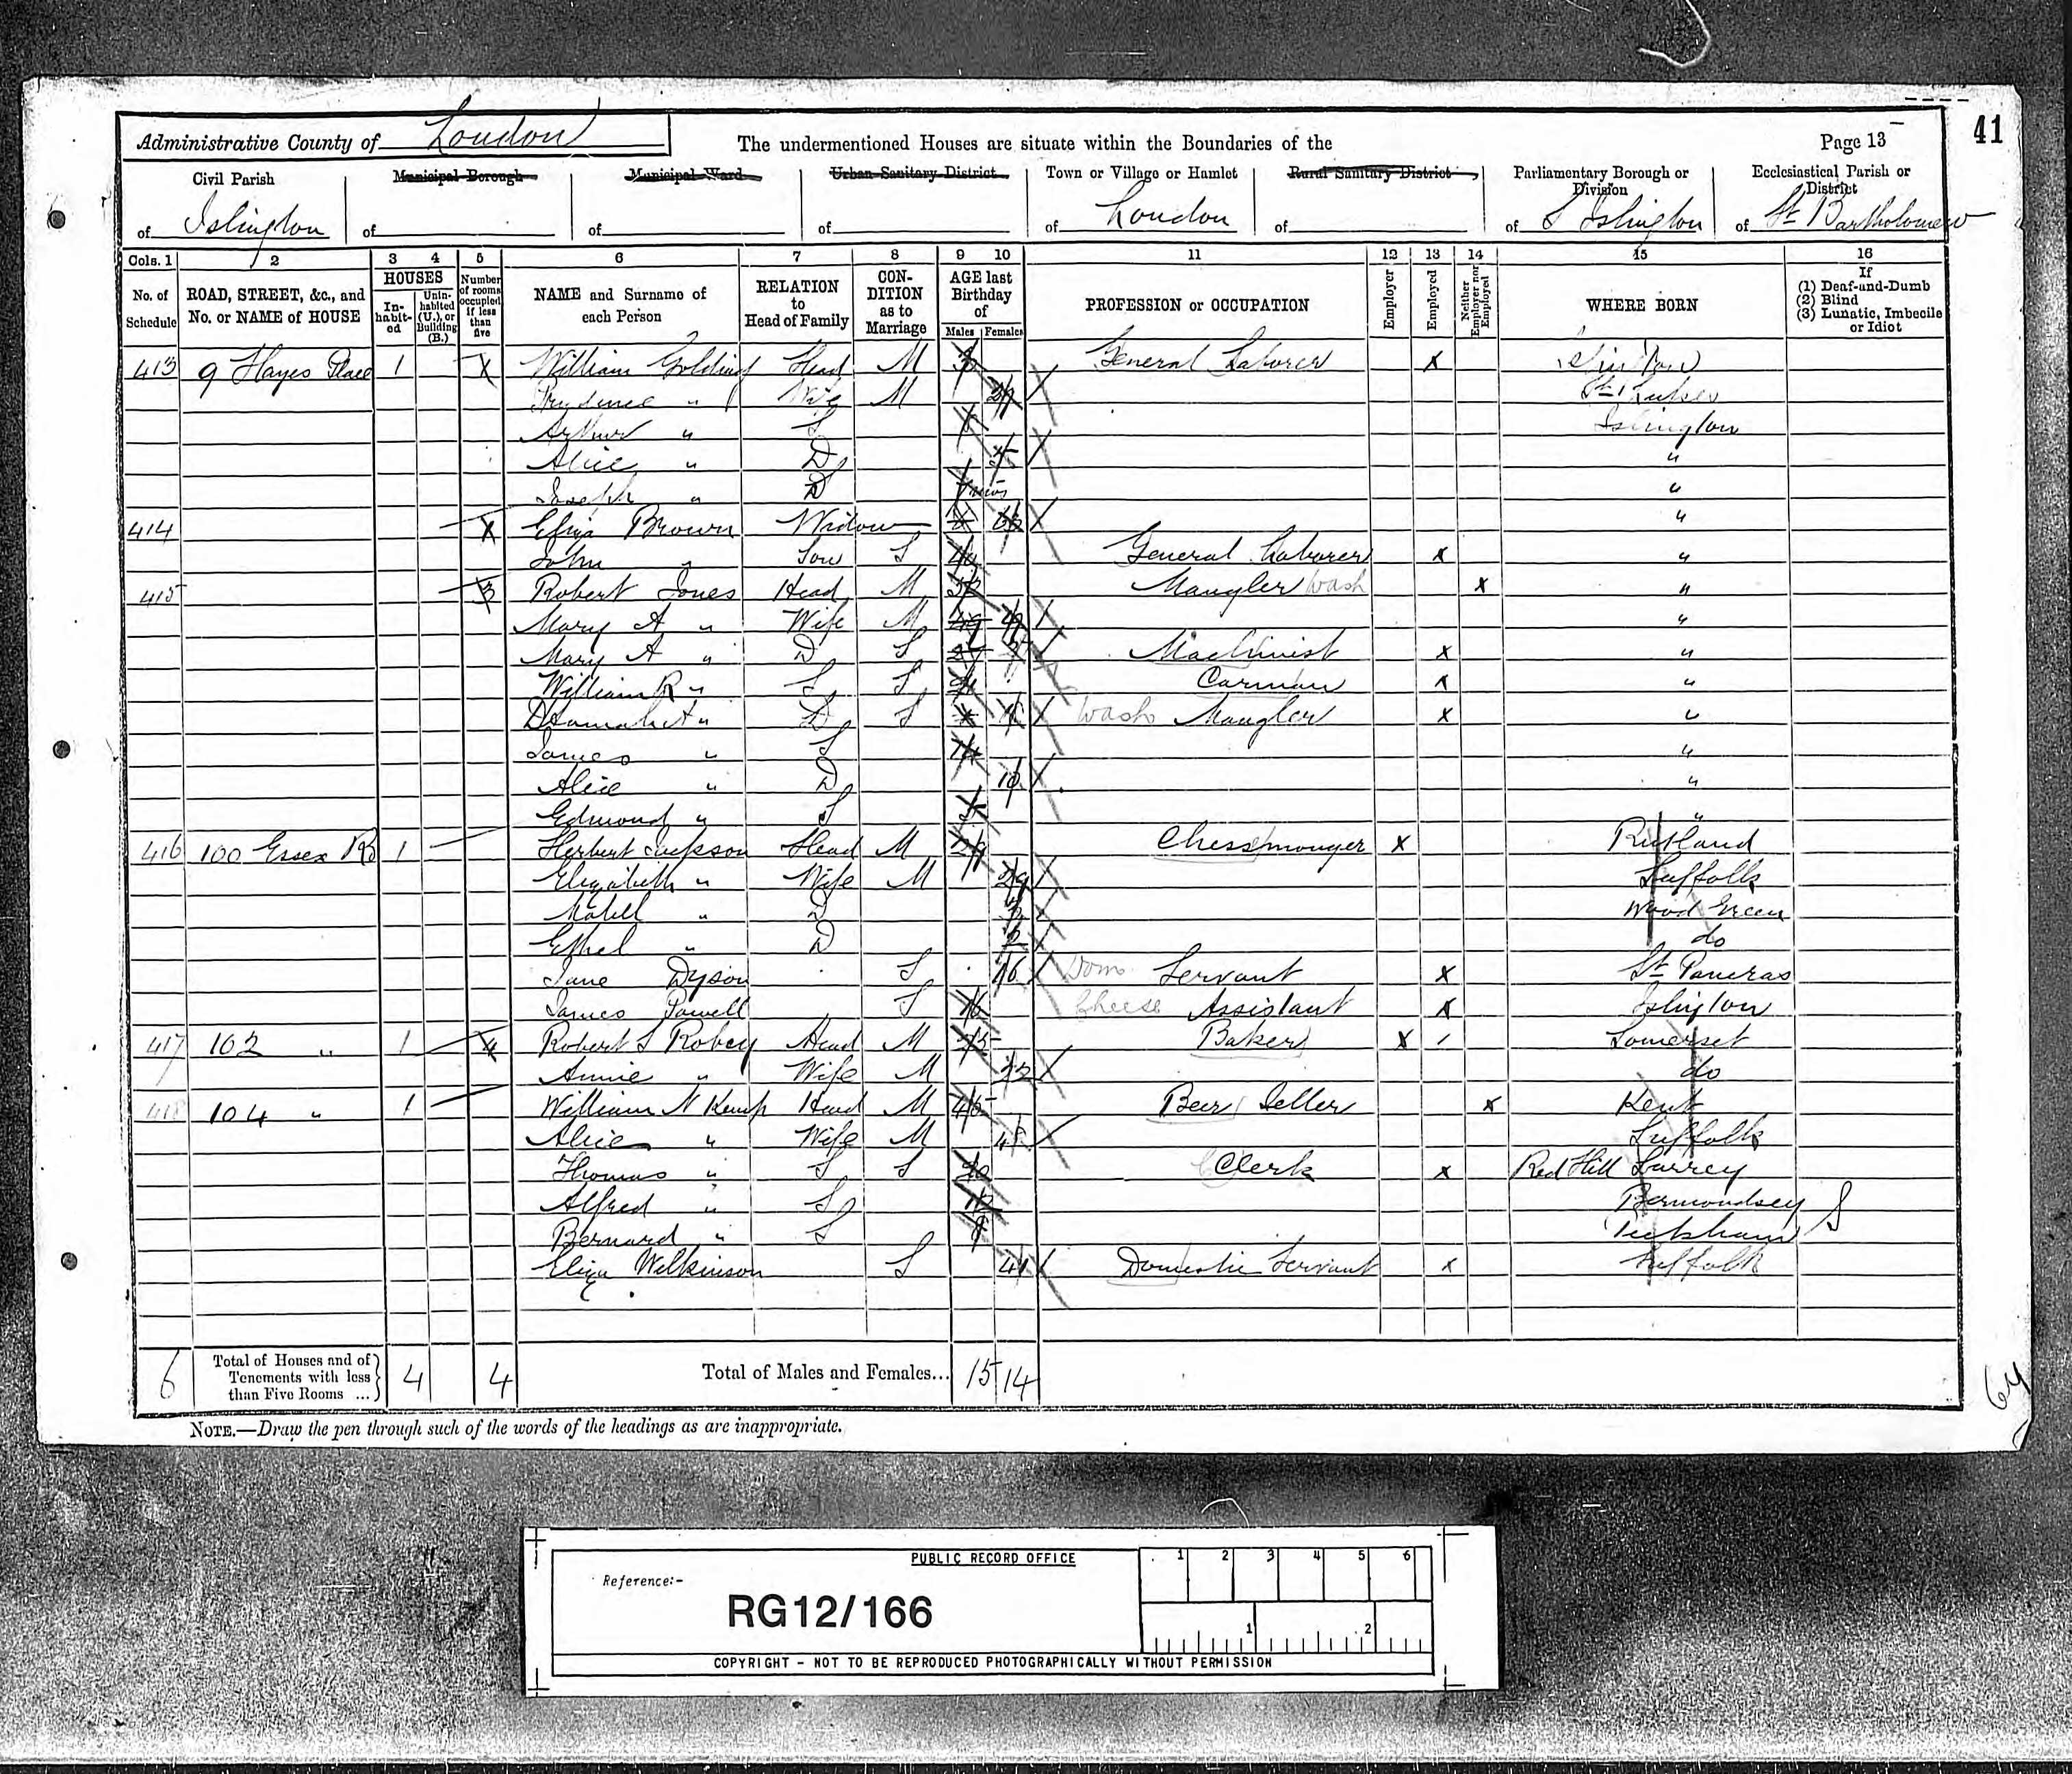 41
Administrative County of London
The undermentioned Houses are situate within the Boundaries of the
Page 13
Civil Parish of Islington
Municipal Borough of
Municipal Ward of
Urban Sanitary District of
Town or Village or Hamlet of London
Rural Sanitary District of
Parliamentary Borough or Division of S Islington
Ecclesiastical Parish or District of St Bartholomew
Cols. 1 2 3 4 5 6 7 8 9 10 11 12 13 14 15 16
No. of Schedule
ROAD, STREET, &c., and No. or NAME of HOUSE
HOUSES
In-habit-ed
Unin-habited (U.), or Building (B.)
Number of rooms occupied if less than five
NAME and Surname of each Person
RELATION to Head of Family
CON-DITION as to Marriage
AGE last Birthday of
Males Females
PROFESSION or OCCUPATION
Employer
Employed
Neither Employer nor Employed
WHERE BORN
If
(1) Deaf-and-Dumb
(2) Blind
(3) Lunatic, Imbecile or Idiot
413 9 Hayes Place 1 William Golding Head M General Laborer x Islington
Prudence " Wife M St Lukes
Arthur " S Islington
Alice " D "
Joseph " "
414 Eliza Brown Widow "
John " Son S General Laborer x "
415 3 Robert Jones Head M Mangler Wash x "
Mary A " Wife M 49 "
Mary A " D S Machinist x "
William R " S S Carman x "
" D S Wash Mangler x "
James " S 14 "
Alice " D 10 "
Edmond " S "
416 100 Essex Rd 1 Herbert Jackson Head M Chessmonger x Rutland
Elizabeth " Wife M 29 Suffolk
Mabell " D Wood Green
Ethel " D 2 do
Jane Dyson S 16 Dom Servant x St Pancras
James Powell S 16 Cheese Assistant x Islington
417 102 " 1 4 Robert S Robey Head M Baker x Somerset
Annie " Wife M 22 do
418 104 " 1 William N Kemp Head M 45 Beer Seller x Kent
Alice " Wife M Suffolk
Thomas " S S 20 Clerk x Red Hill Surrey
Alfred " S 12 Bermondsey S
Bernard " S 8 Peckham
Eliza Wilkinson S 41 Domestic Servant x Suffolk
6 Total of Houses and of Tenements with less than Five Rooms ... 4 4 Total of Males and Females... 15 14
64
NOTE.—Draw the pen through such of the words of the headings as are inappropriate.
PUBLIC RECORD OFFICE
Reference:-
RG12/166
1 2 3 4 5 6
1 2
COPYRIGHT - NOT TO BE REPRODUCED PHOTOGRAPHICALLY WITHOUT PERMISSION